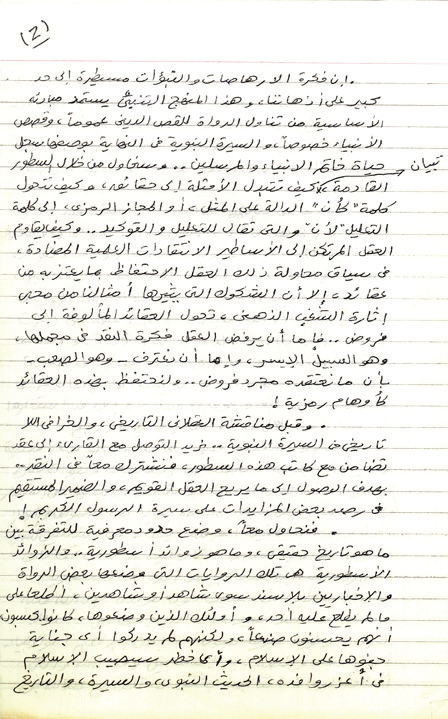 (2)
. إن فكرة الإرهاصات والتنبؤات مسيطرة إلى حد
كبير على أذهاننا، وهذا المنهج التنبئي يستمد مبادئه
الأساسية من تناول الرواة للقص الديني عموماً، وقصص
الأنبياء خصوصاً، والسيرة النبوية في النهاية بوصفها سجل
تبيان حياة خاتم الأنبياء والمرسلين.. وسنحاول من خلال السطور
القادمة كيف تتبدل الأمثلة إلى حقائق، وكيف تتحول
كلمة "كأن" الدالة على المثل، أو المجاز الرمزي، إلى كلمة
التعليل "لأن" والتي تقال للتعليل والتوكيد.. وكيف يقاوم
العقل المرتكن إلى الأساطير الانتقادات العلمية المضادة،
في سياق محاولة ذلك العقل الاحتفاظ بما يعتز به من
عقائد، إلا أن الشكوك التي يثيرها أمثالنا من محبي
إثارة الشغب الذهني، تحول العقائد المألوفة إلى
فروض.. فإما أن يرفض العقل فكرة النقد في مجملها،
وهو السبيل الأيسر، وإما أن نعترف - وهو الصعب -
بأن ما نعتقده مجرد فروض.. ولنحتفظ بهذه العقائد
كأوهام رمزية!
. وقبل مناقشة العقلاني التاريخي، والخرافي اللا
تاريخي في السيرة النبوية.. نريد التوصل مع القارئ إلى عقد
تضامن مع كاتب هذه السطور، فنشترك معاً في النقد..
بهدف الوصول إلى ما يريح العقل القويم، والضمير المستقيم
في رصد بعض المزايدات على سيرة الرسول الكريم!
. فنحاول معاً، وضع حدود معرفية للتفرقة بين
ما هو تاريخ حقيقي، وما هو زوائد أسطورية.. والزوائد
الأسطورية هي تلك الروايات التي وضعها بعض الرواة
والإخباريين بلا سند سوى شاهد أو شاهدين، اطلعا على
ما لم يطلع عليه أحد، وأولئك الذين وضعوها، كانوا يحسبون
أنهم يحسنون صنعاً، ولكنهم لم يدركوا أي جناية
جنوها على الإسلام، وأي خطر سيصيب الإسلام
في أعز روافده، الحديث النبوي، والسيرة، والتاريخ